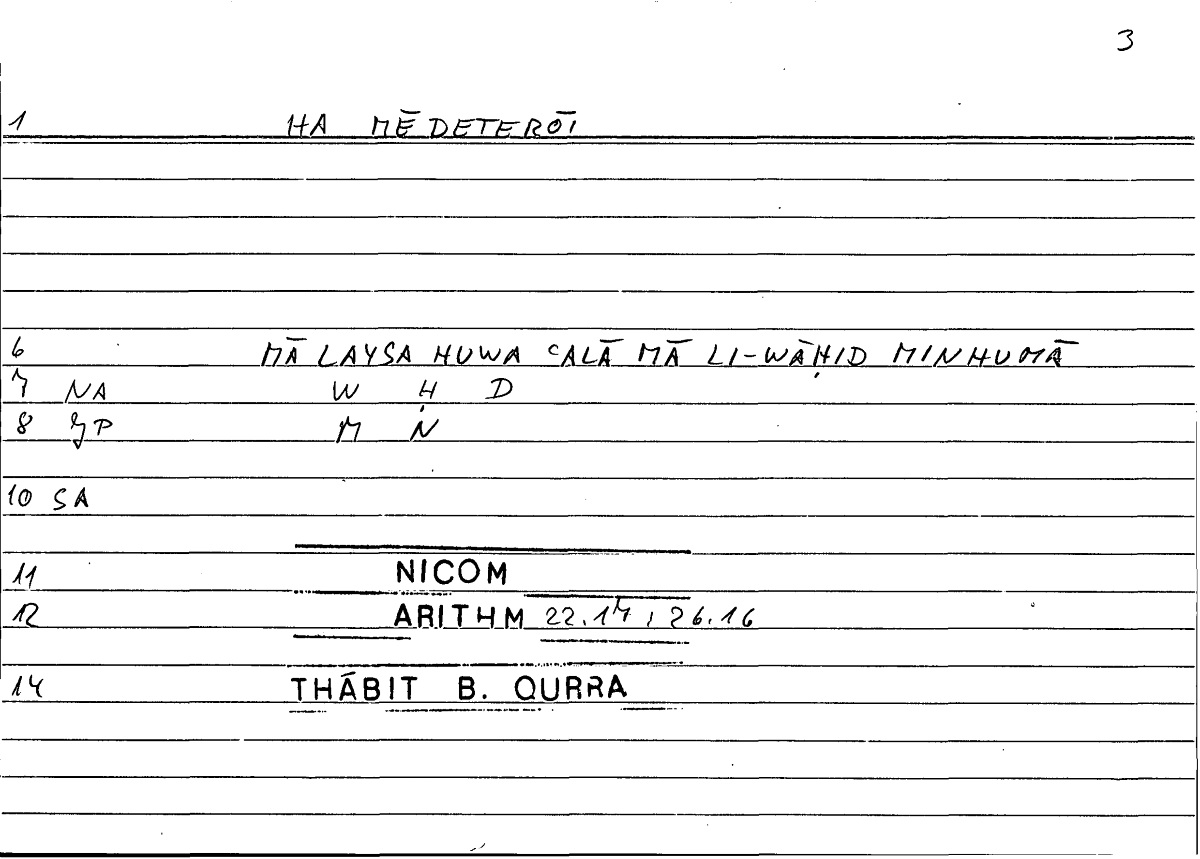 3
1 HA MĒDETERŌI
6 MĀ LAYSA HUWA ʿALĀ MĀ LI-WĀḤID MINHUMĀ
7 NA W Ḥ D
8 JP M N
10 SA
11 NICOM
12 ARITHM 22.17 ; 26.16
14 THĀBIT B. QURRA